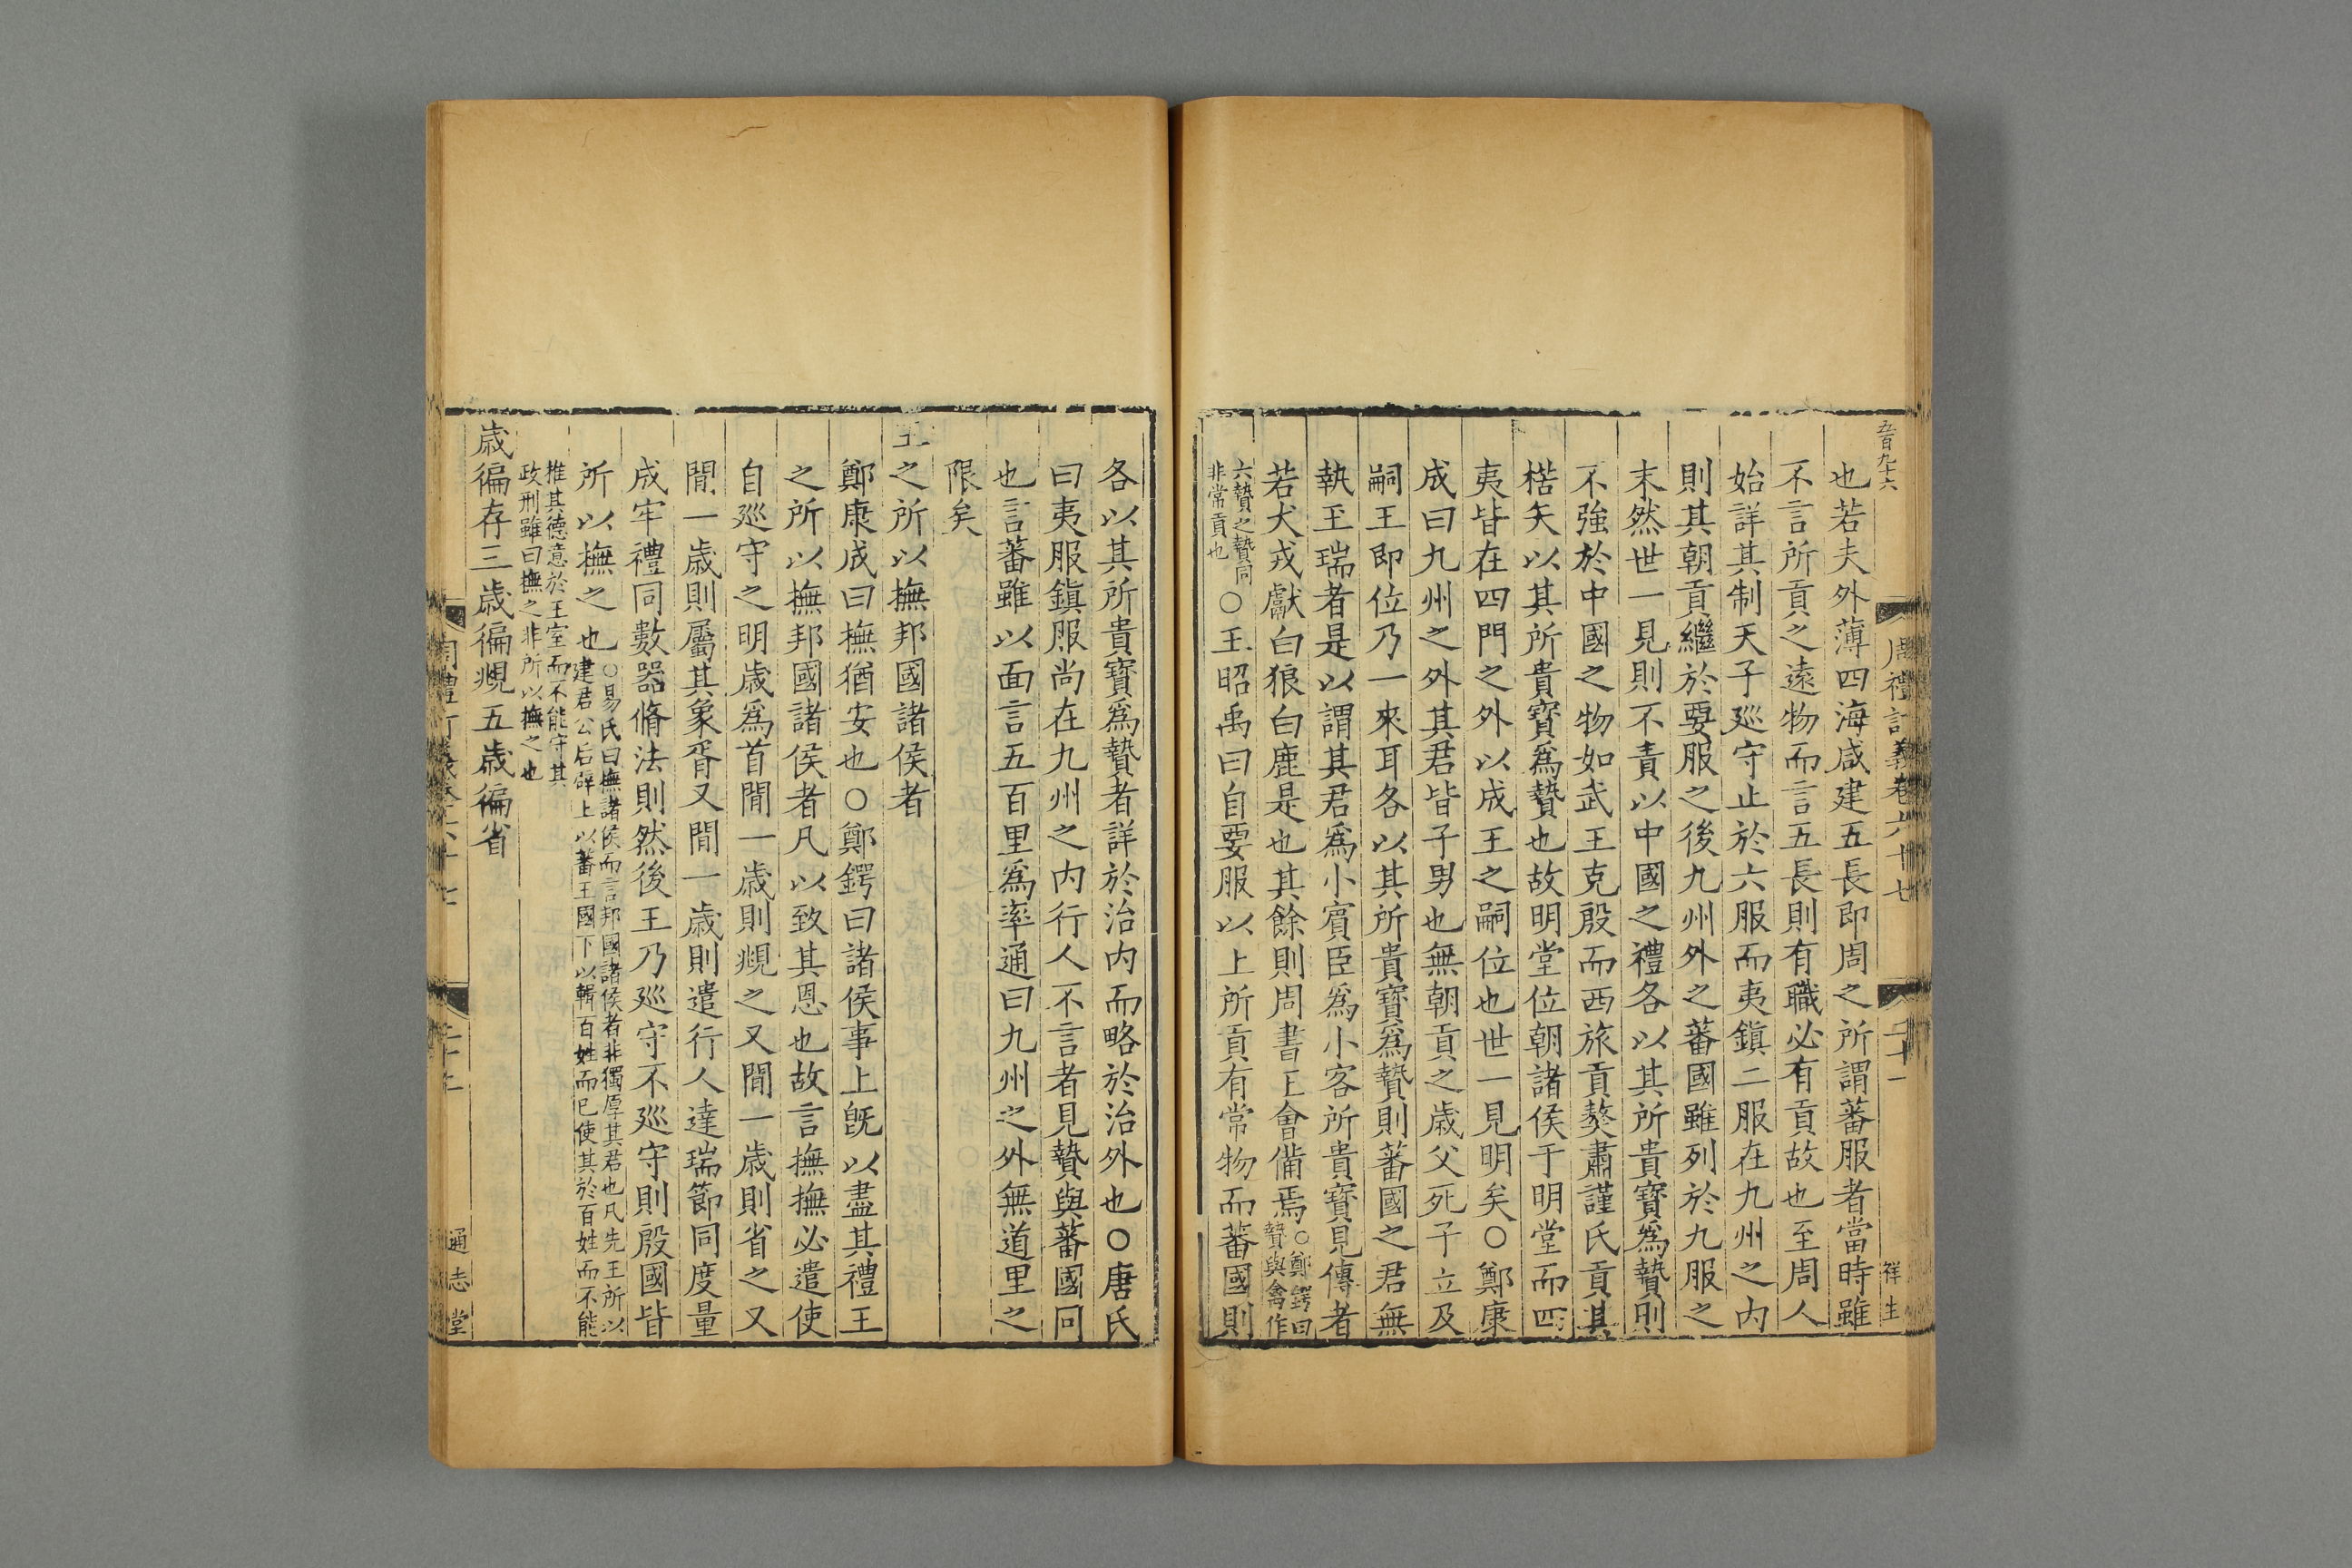 五百九十六
周禮訂義卷六十七
二十一
祥生
也若夫外薄四海咸建五長即周之所謂蕃服者當時雖
不言所貢之遠物而言五長則有職必有貢故也至周人
始詳其制天子廵守止於六服而夷鎮二服在九州之内
則其朝貢繼於要服之後九州外之蕃國雖列於九服之
末然世一見則不責以中國之禮各以其所貴寶爲贄則
不強於中國之物如武王克殷而西旅貢獒肅謹氏貢其
楛矢以其所貴寶爲贄也故明堂位朝諸侯于明堂而四
夷皆在四門之外以成王之嗣位也世一見明矣○鄭康
成曰九州之外其君皆子男也無朝貢之歲父死子立及
嗣王即位乃一來耳各以其所貴寶爲贄則蕃國之君無
執玉瑞者是以謂其君爲小賓臣爲小客所貴寶見傳者
若犬戎獻白狼白鹿是也其餘則周書王會備焉○鄭鍔曰贄與禽作
六贄之贄同非常貢也○王昭禹曰自要服以上所貢有常物而蕃國則
各以其所貴寶爲贄者詳於治内而略於治外也○唐氏
曰夷服鎮服尚在九州之内行人不言者見贄與蕃國同
也言蕃雖以面言五百里爲率通曰九州之外無道里之
限矣
王之所以撫邦國諸侯者
鄭康成曰撫猶安也○鄭鍔曰諸侯事上旣以盡其禮王
之所以撫邦國諸侯者凡以致其恩也故言撫撫必遣使
自廵守之明歲爲首閒一歲則覜之又閒一歲則省之又
閒一歲則屬其象胥又閒一歲則遣行人達瑞節同度量
成牢禮同數器脩法則然後王乃廵守不廵守則殷國皆
所以撫之也○易氏曰撫諸侯而言邦國諸侯者非獨厚其君也凡先王所以
建君公后辟上以蕃王國下以輯百姓而已使其於百姓而不能
推其德意於王室而不能守其
政刑雖曰撫之非所以撫之也
歲徧存三歲徧覜五歲徧省
通志堂